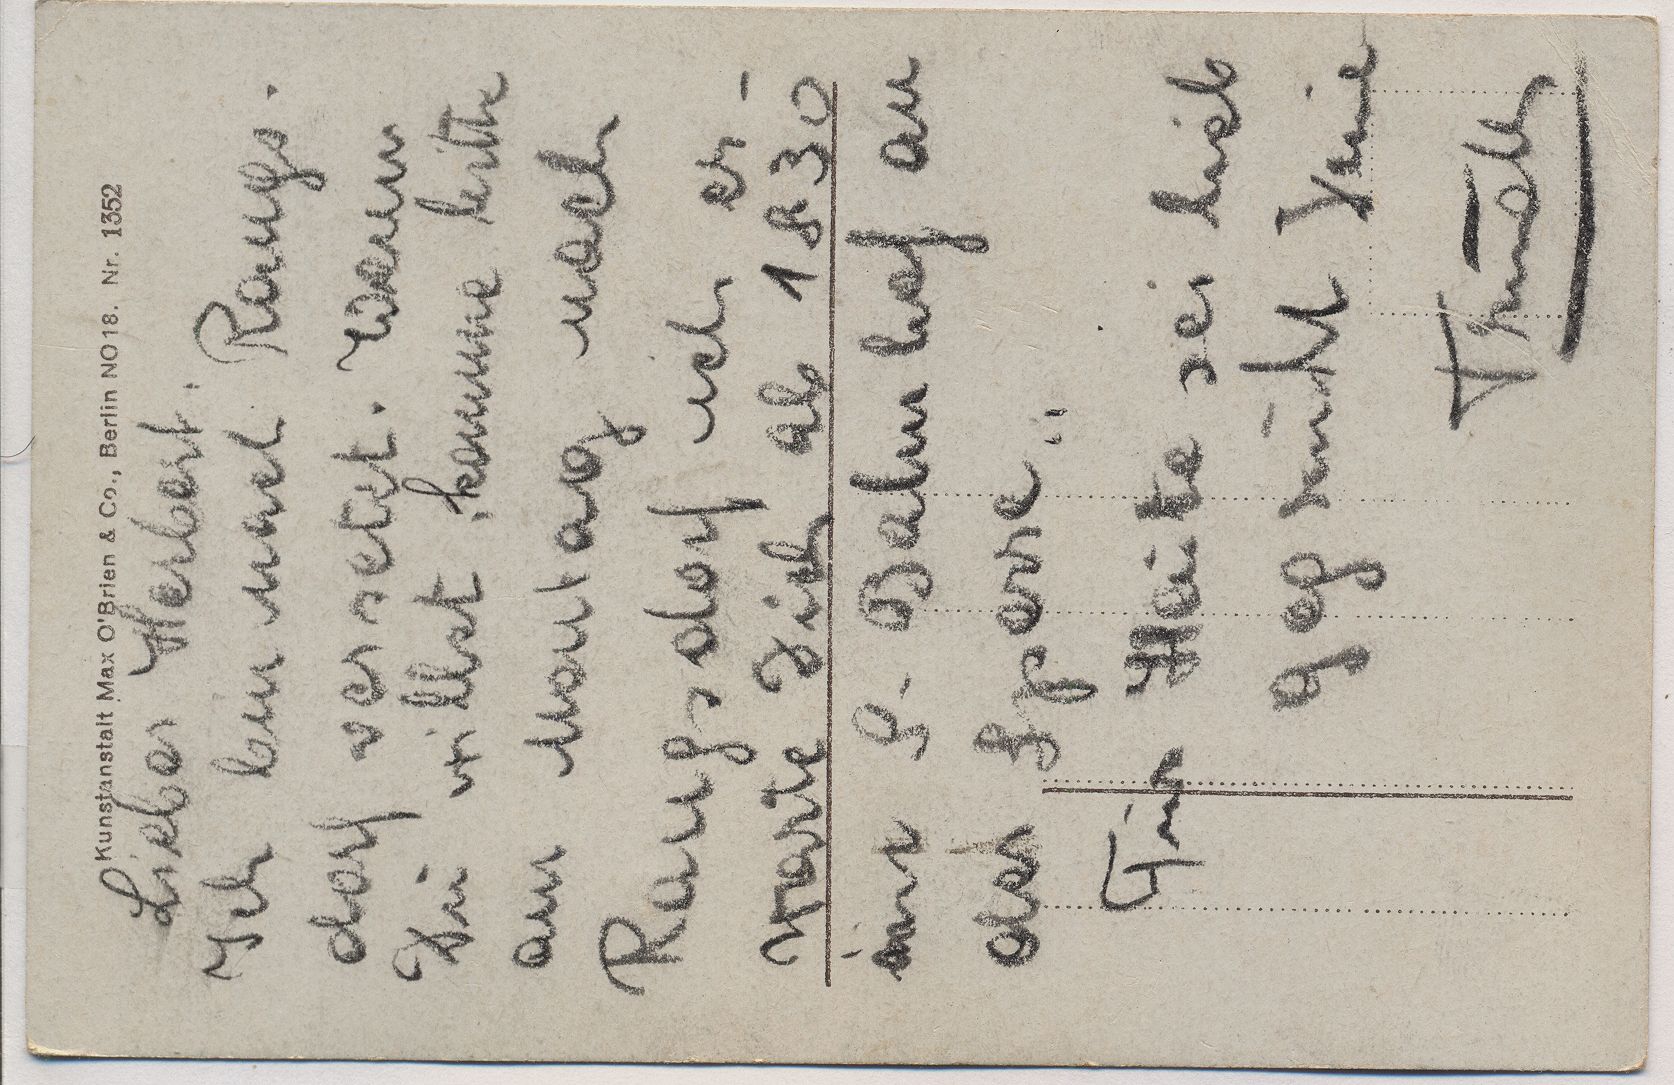 Kunstanstalt Max O'Brien & Co., Berlin NO18. Nr. 1352
Lieber Herbert.
Ich bin nach Rangs-
dorf versetzt. Wenn
Du willst, komme bitte
am Montag nach
Rangsdorf ich er-
warte Dich ab 1830
im S-Bahnhof an
der Sperre.
Für Heute sei lieb
gegrüßt Deine
Traudl